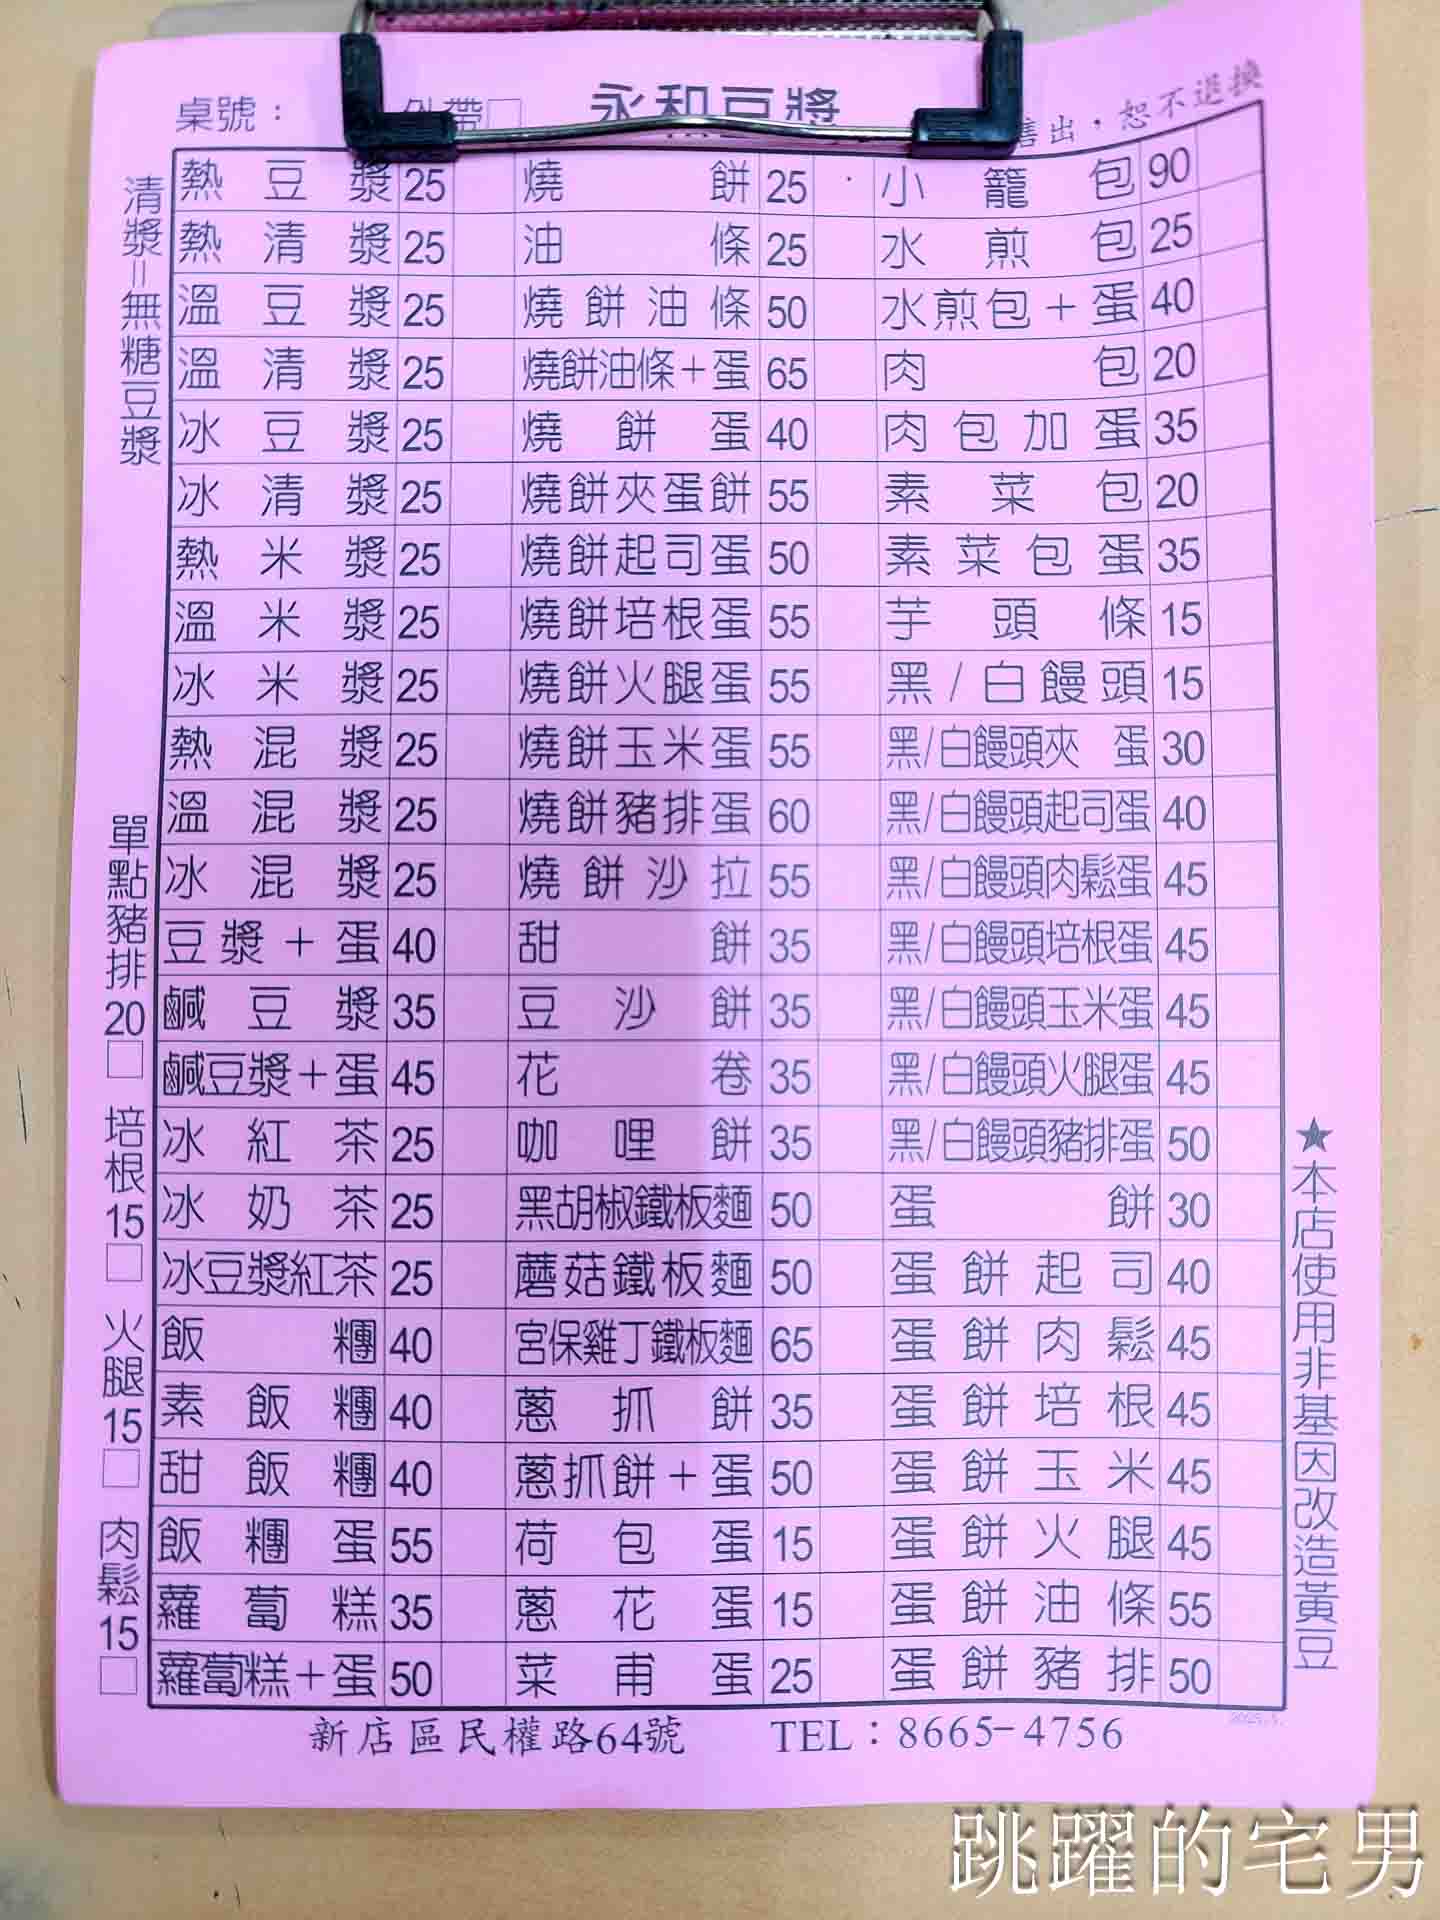 桌號： 外帶□ 永和豆漿 售出，恕不退換
清漿=無糖豆漿
單點豬排20□ 培根15□ 火腿15□ 肉鬆15□
熱豆漿 25 燒餅 25 小籠包 90
熱清漿 25 油條 25 水煎包 25
溫豆漿 25 燒餅油條 50 水煎包+蛋 40
溫清漿 25 燒餅油條+蛋 65 肉包 20
冰豆漿 25 燒餅蛋 40 肉包加蛋 35
冰清漿 25 燒餅夾蛋餅 55 素菜包 20
熱米漿 25 燒餅起司蛋 50 素菜包蛋 35
溫米漿 25 燒餅培根蛋 55 芋頭條 15
冰米漿 25 燒餅火腿蛋 55 黑/白饅頭 15
熱混漿 25 燒餅玉米蛋 55 黑/白饅頭夾蛋 30
溫混漿 25 燒餅豬排蛋 60 黑/白饅頭起司蛋 40
冰混漿 25 燒餅沙拉 55 黑/白饅頭肉鬆蛋 45
豆漿+蛋 40 甜餅 35 黑/白饅頭培根蛋 45
鹹豆漿 35 豆沙餅 35 黑/白饅頭玉米蛋 45
鹹豆漿+蛋 45 花卷 35 黑/白饅頭火腿蛋 45
冰紅茶 25 咖哩餅 35 黑/白饅頭豬排蛋 50
冰奶茶 25 黑胡椒鐵板麵 50 蛋餅 30
冰豆漿紅茶 25 蘑菇鐵板麵 50 蛋餅起司 40
飯糰 40 宮保雞丁鐵板麵 65 蛋餅肉鬆 45
素飯糰 40 蔥抓餅 35 蛋餅培根 45
甜飯糰 40 蔥抓餅+蛋 50 蛋餅玉米 45
飯糰蛋 55 荷包蛋 15 蛋餅火腿 45
蘿蔔糕 35 蔥花蛋 15 蛋餅油條 55
蘿蔔糕+蛋 50 菜甫蛋 25 蛋餅豬排 50
★本店使用非基因改造黃豆
新店區民權路64號 TEL：8665-4756
跳躍的宅男